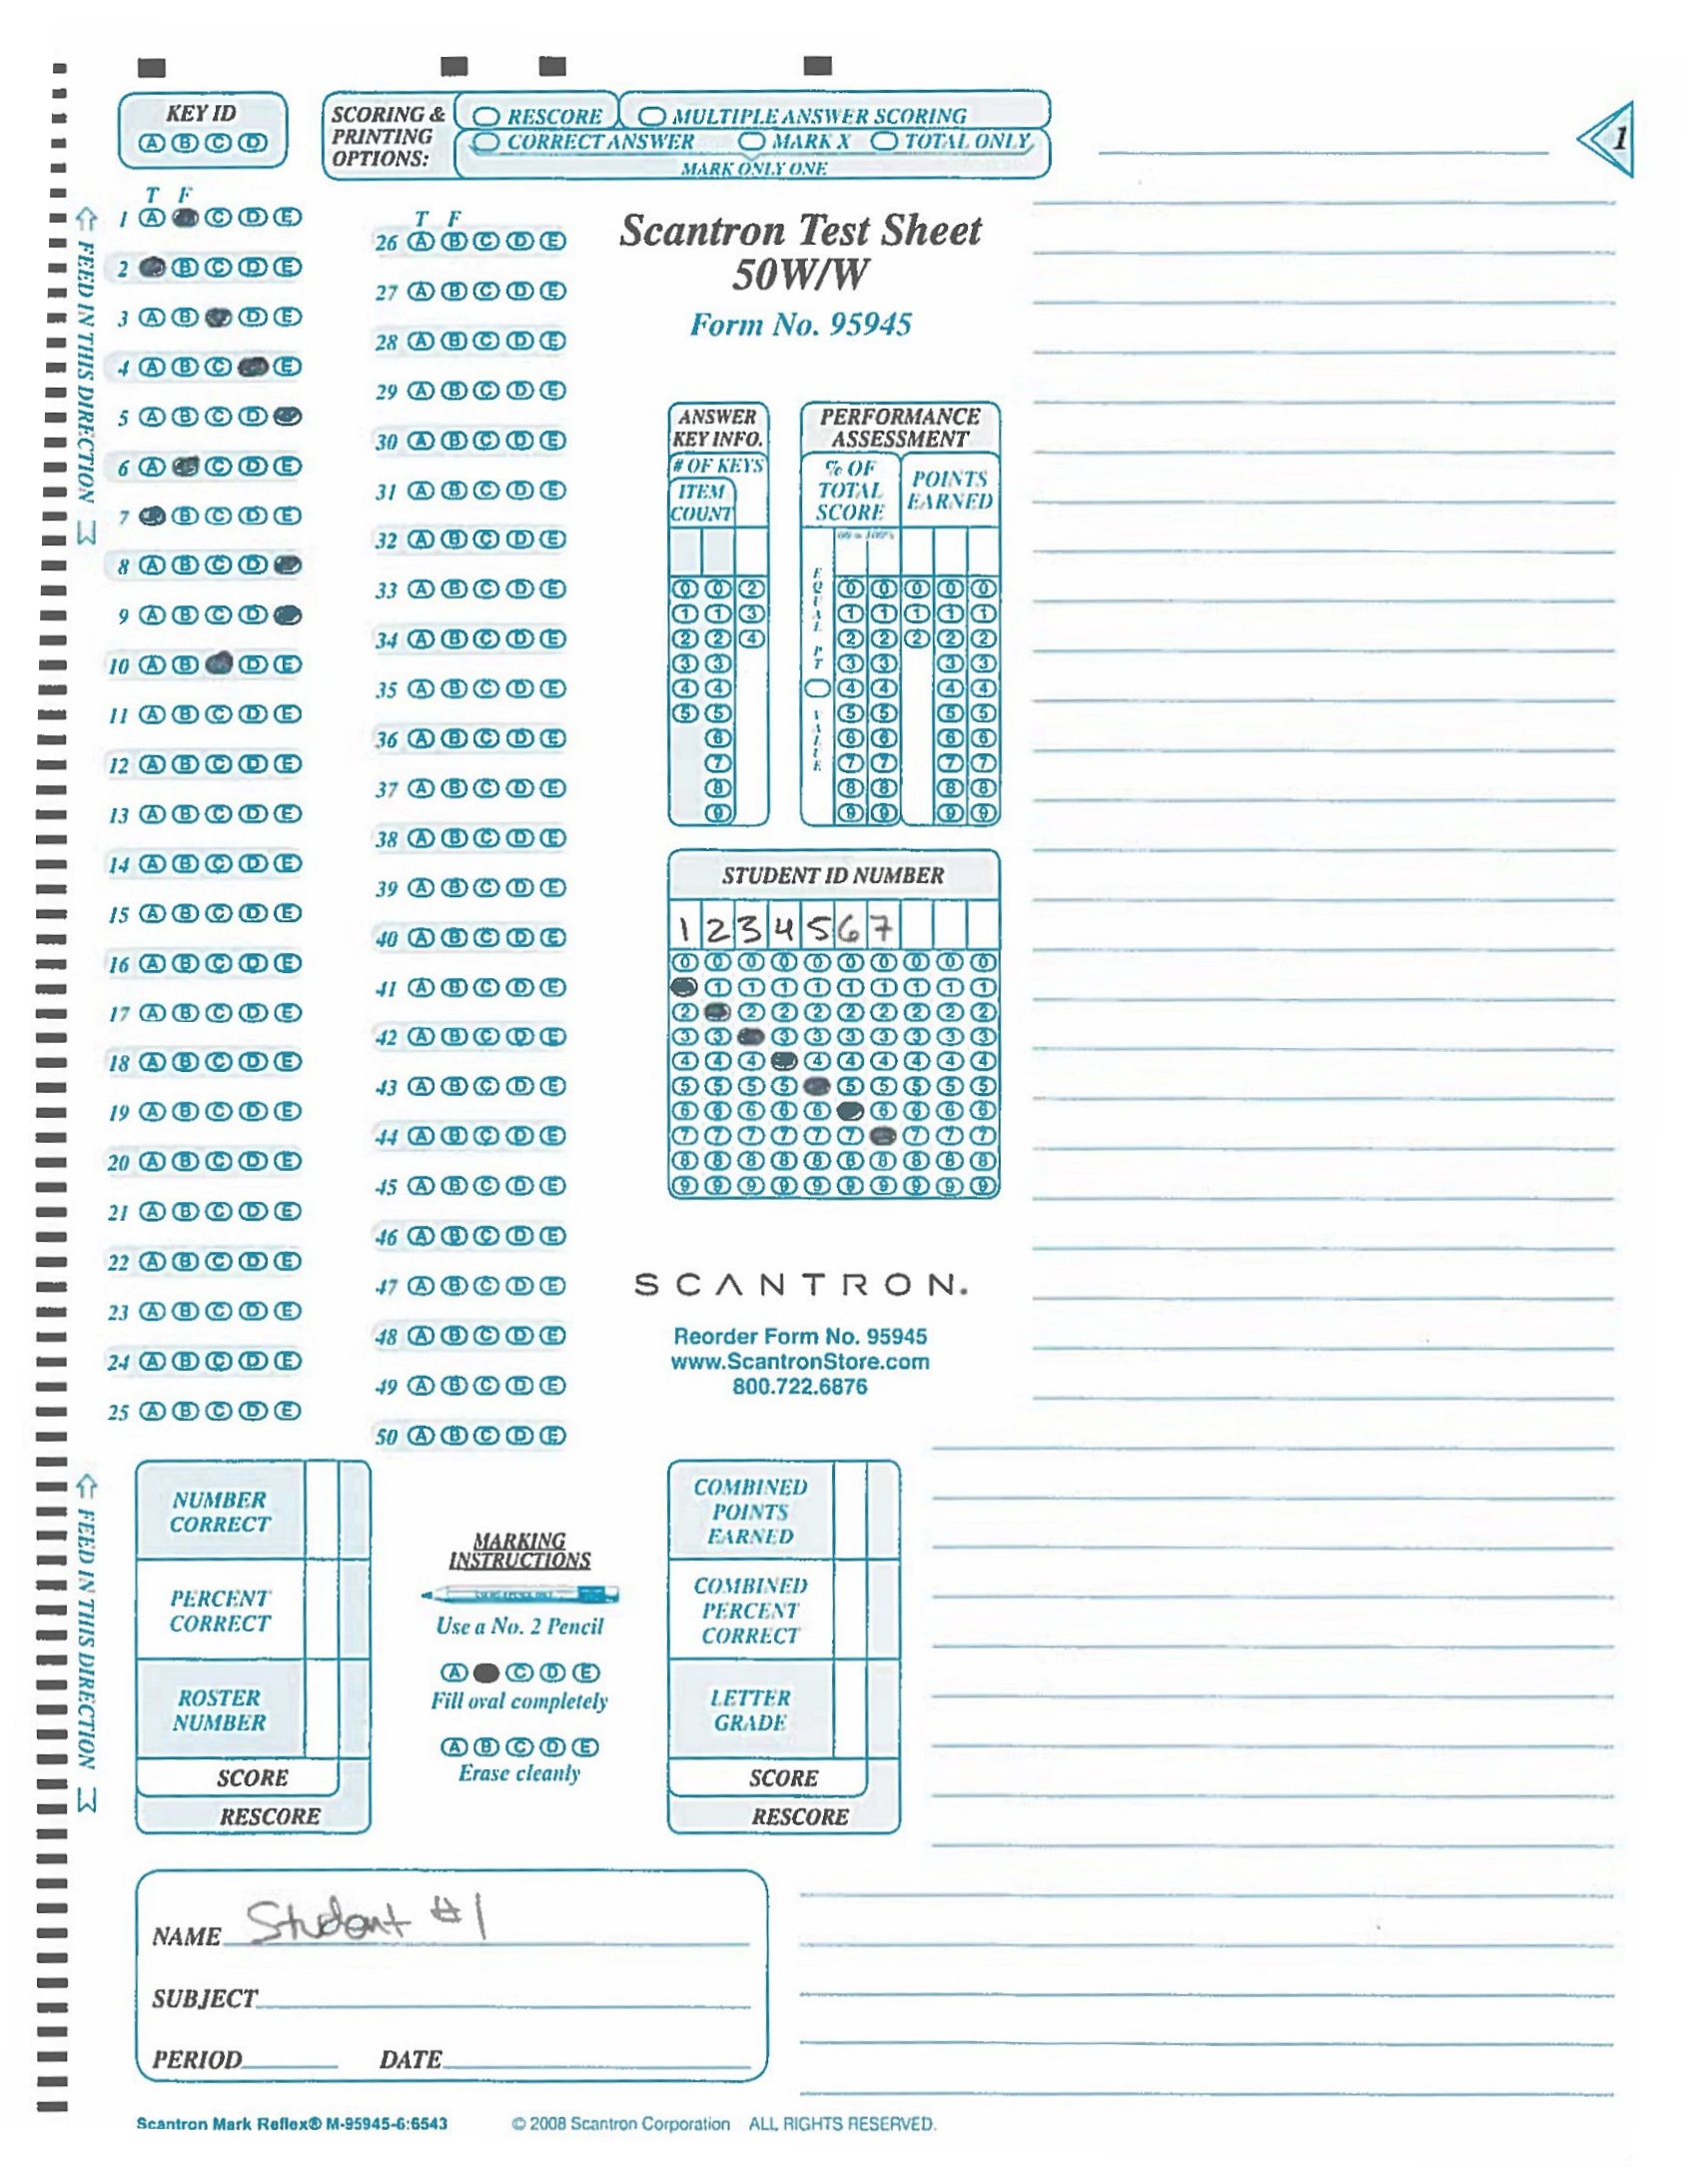 KEY ID
A B C D
SCORING & PRINTING OPTIONS:
RESCORE
MULTIPLE ANSWER SCORING
CORRECT ANSWER
MARK X
TOTAL ONLY
MARK ONLY ONE
1
FEED IN THIS DIRECTION
T F
1 A C D E
2 B C D E
3 A B D E
4 A B C E
5 A B C D
6 A C D E
7 B C D E
8 A B C D
9 A B C D
10 A B D E
11 A B C D E
12 A B C D E
13 A B C D E
14 A B C D E
15 A B C D E
16 A B C D E
17 A B C D E
18 A B C D E
19 A B C D E
20 A B C D E
21 A B C D E
22 A B C D E
23 A B C D E
24 A B C D E
25 A B C D E
T F
26 A B C D E
27 A B C D E
28 A B C D E
29 A B C D E
30 A B C D E
31 A B C D E
32 A B C D E
33 A B C D E
34 A B C D E
35 A B C D E
36 A B C D E
37 A B C D E
38 A B C D E
39 A B C D E
40 A B C D E
41 A B C D E
42 A B C D E
43 A B C D E
44 A B C D E
45 A B C D E
46 A B C D E
47 A B C D E
48 A B C D E
49 A B C D E
50 A B C D E
Scantron Test Sheet
50W/W
Form No. 95945
ANSWER
KEY INFO.
# OF KEYS
ITEM
COUNT
0 0 2
1 1 3
2 2 4
3 3
4 4
5 5
6
7
8
9
PERFORMANCE
ASSESSMENT
% OF
TOTAL
SCORE
POINTS
EARNED
EQUAL PT VALUE
0 0 0 0 0
1 1 1 1 1
2 2 2 2 2
3 3 3 3
4 4 4 4
5 5 5 5
6 6 6 6
7 7 7 7
8 8 8 8
9 9 9 9
STUDENT ID NUMBER
1 2 3 4 5 6 7
0 0 0 0 0 0 0 0 0 0
1 1 1 1 1 1 1 1 1
2 2 2 2 2 2 2 2 2
3 3 3 3 3 3 3 3 3
4 4 4 4 4 4 4 4 4
5 5 5 5 5 5 5 5 5
6 6 6 6 6 6 6 6 6
7 7 7 7 7 7 7 7 7
8 8 8 8 8 8 8 8 8 8
9 9 9 9 9 9 9 9 9 9
SCANTRON.
Reorder Form No. 95945
www.ScantronStore.com
800.722.6876
FEED IN THIS DIRECTION
NUMBER
CORRECT
PERCENT
CORRECT
ROSTER
NUMBER
SCORE
RESCORE
MARKING
INSTRUCTIONS
Use a No. 2 Pencil
A C D E
Fill oval completely
A B C D E
Erase cleanly
COMBINED
POINTS
EARNED
COMBINED
PERCENT
CORRECT
LETTER
GRADE
SCORE
RESCORE
NAME Student #1
SUBJECT
PERIOD DATE
Scantron Mark Reflex® M-95945-6:6543 © 2008 Scantron Corporation ALL RIGHTS RESERVED.